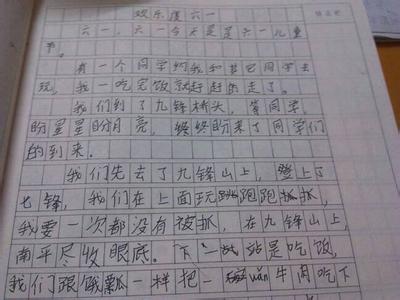 欢乐度六一
六一,六一今天是是六一儿童
节。
有一个同学约我和其它同学去
玩,我一吃完饭就赶赶的走了。
我们到了九锋桥头,等同学,
盼星星盼月亮,终终盼来了同学们
的到来。
我们先去了九锋山上,登上了
七锋,我们在上面玩跑跑抓抓,
我要一次都没有被抓,在九锋山上,
南平尽收眼底。下一站是吃饭,
我们跟饿瓢一样把一wǎn牛肉吃下